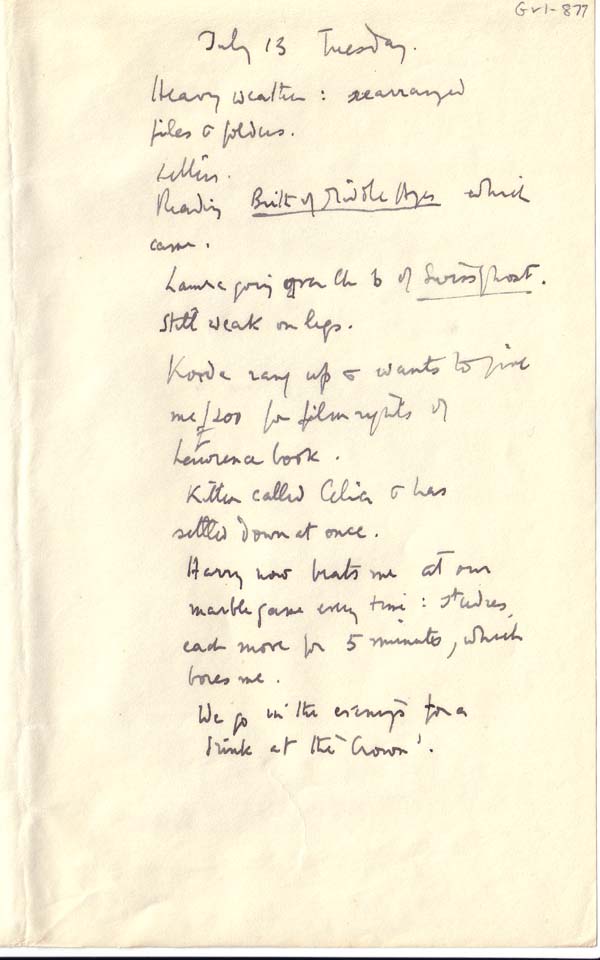 Gr1-877
July 13 Tuesday.
Heavy weather : rearranged
files & folders.
Letters.
Reading Built of Middle Ages which
came.
Laura going over Ch 6 of Swiss Ghost.
Still weak on legs.
Korda rang up & wants to give
me £200 for film rights of
Lawrence book.
Kitten called Celia & has
settled down at once.
Harry now beats me at our
marble game every time : studies
each move for 5 minutes, which
bores me.
We go in the evenings for a
drink at the 'Crown'.